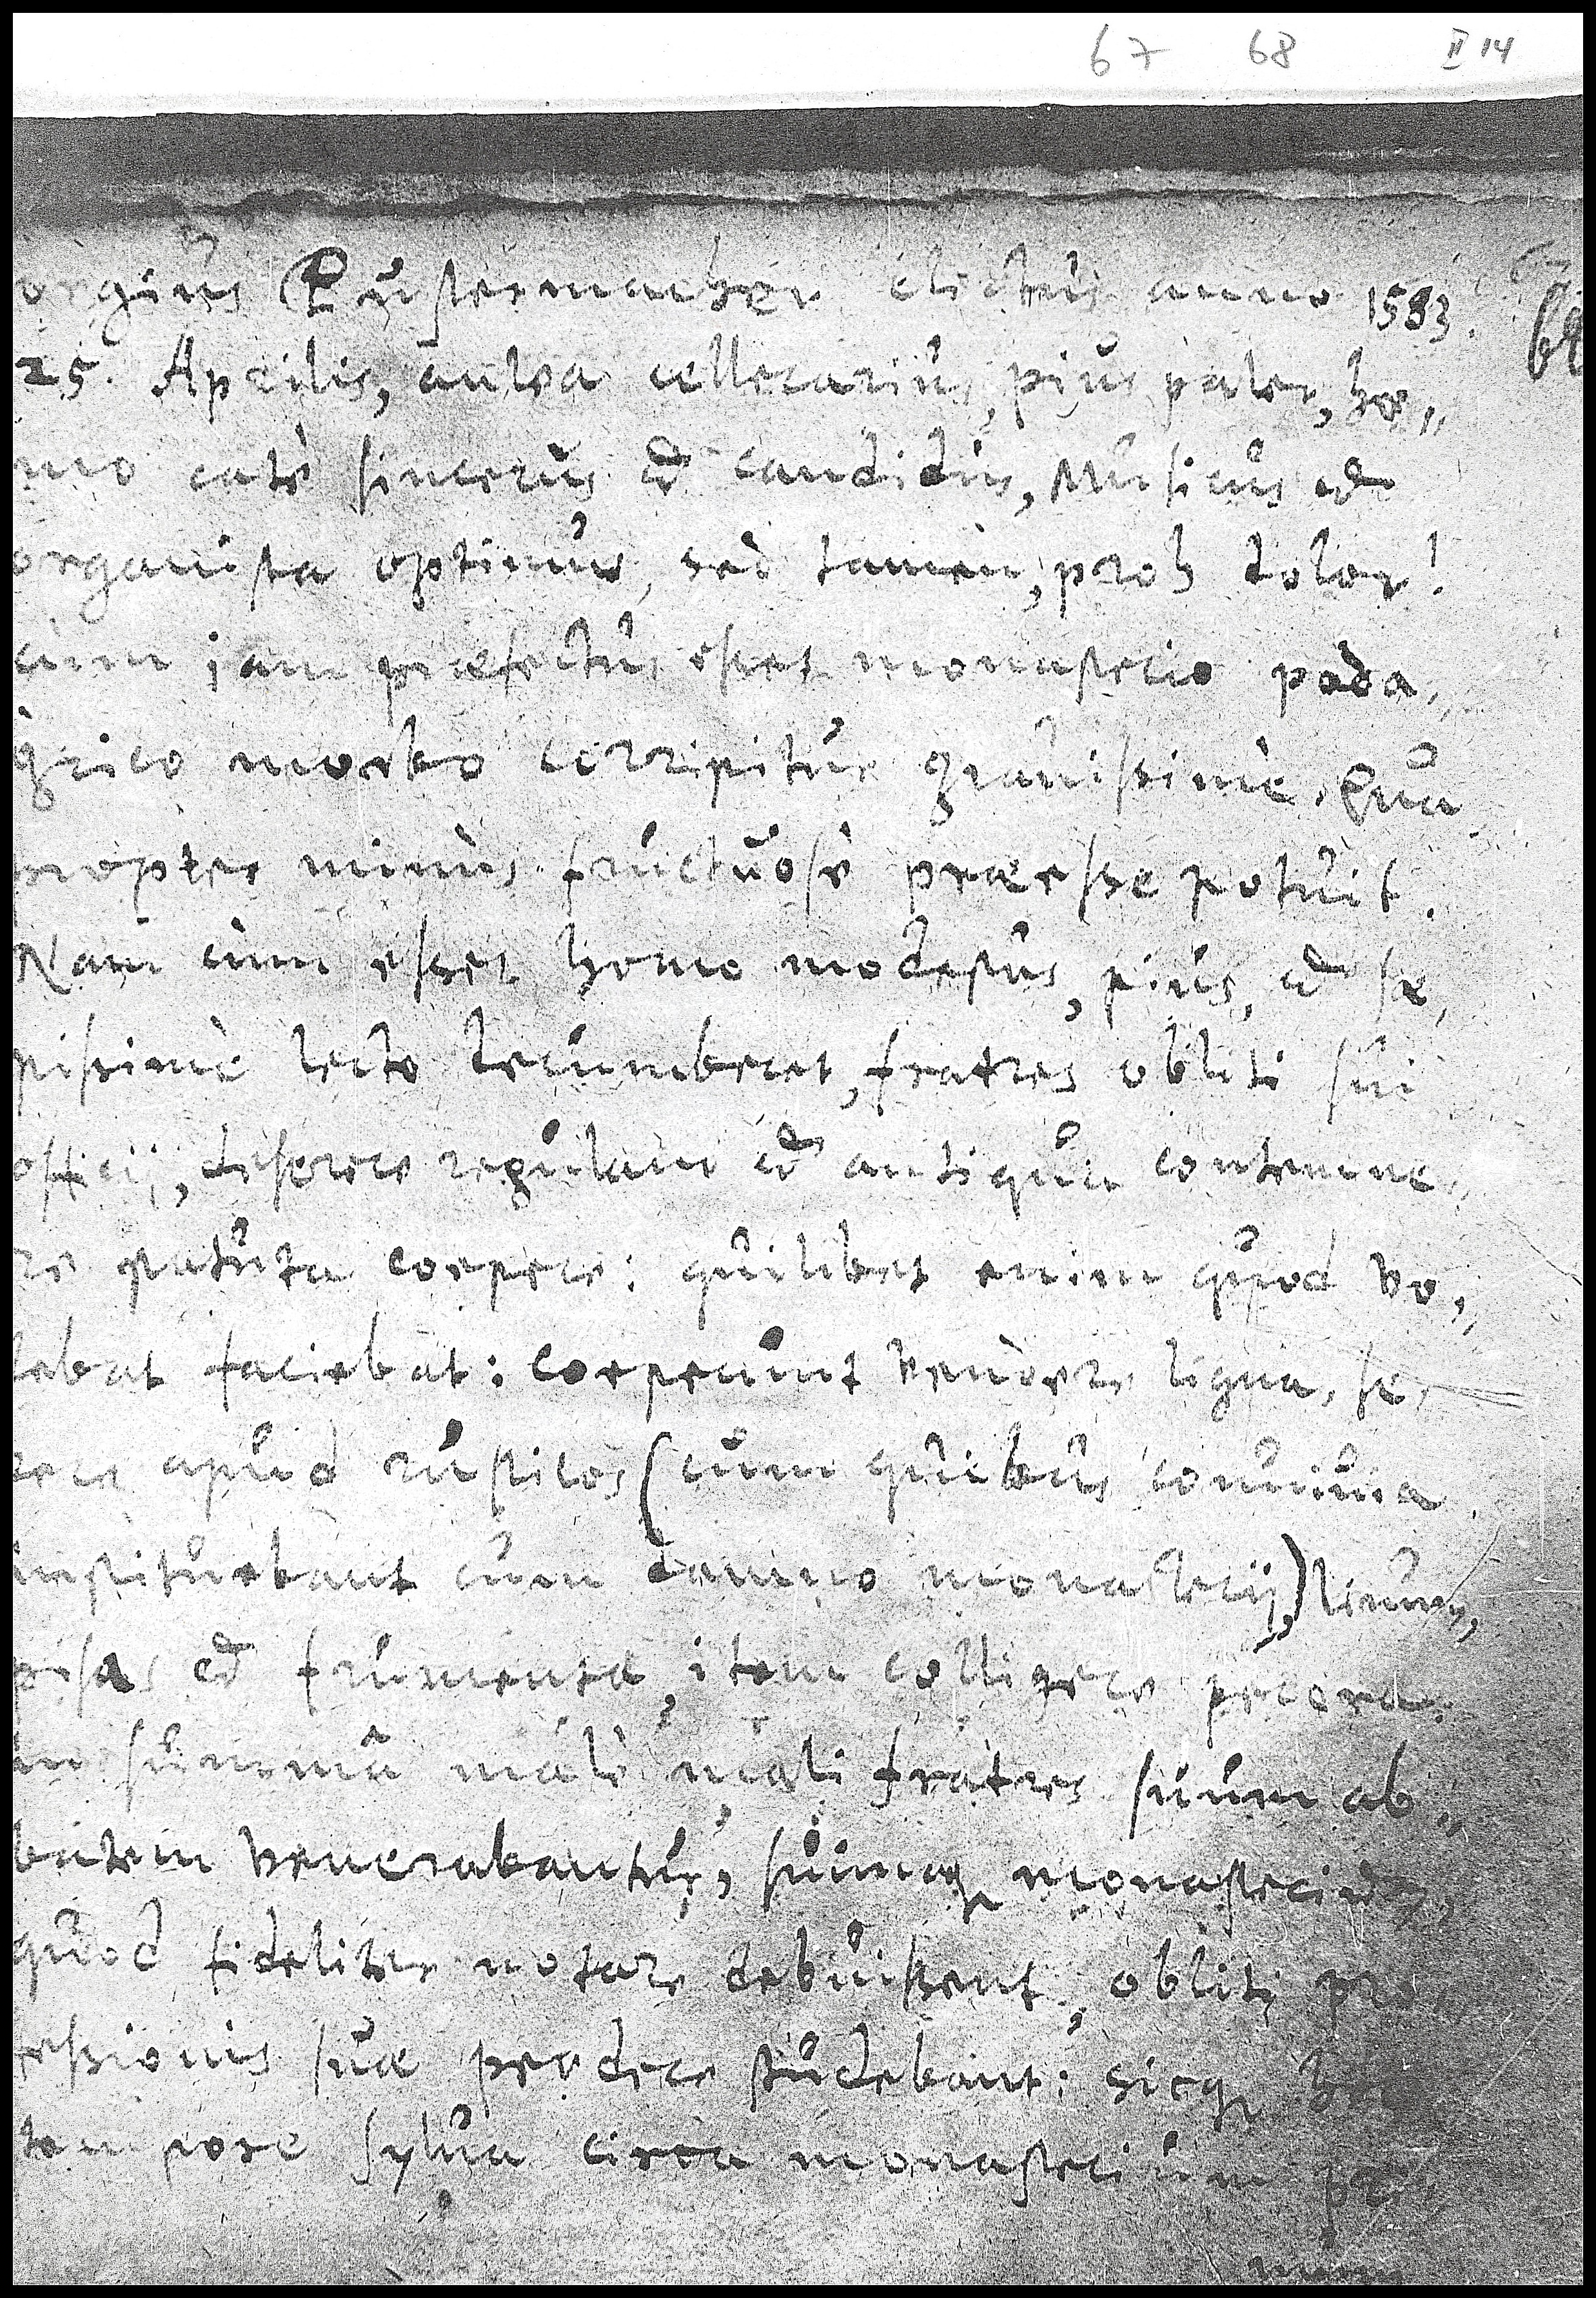 67 68 II 14
orgius Pustermacher electus anno 1593. 68
25. Aprilis, antea cellerarius, pius pater, ho„
mo certè sincerus et candidus, Musicus et
organista optimus, sed tamen, proh dolor!
cùm jam præfectus esset monasterio poda„
grico morbo corripitur grauissimè. Qua
propter minùs fructuosè præesse potuit.
Nam cùm esset homo modestus, pius, et sæ„
pissimè lecto decumberet, fratres obliti sui
officij, deserere regulam et antiqua contemne„
re statuta coepere: quilibet enim quod vo„
lebat faciebat: coeperunt vendere ligna, se„
rere apud rusticos (cum quibus conuiuia
instituebant cum damno monasterij,) linum,
pisas et frumenta, item colligere pecora.
in summâ malè mali fratres suum ab„
batem venerabantur, suumq monasterium,
quod fideliter notare debuissent, obliti pro„
fessionis suæ prodere studebant: sicq hoc
tempore sylua circa monasterium pe„